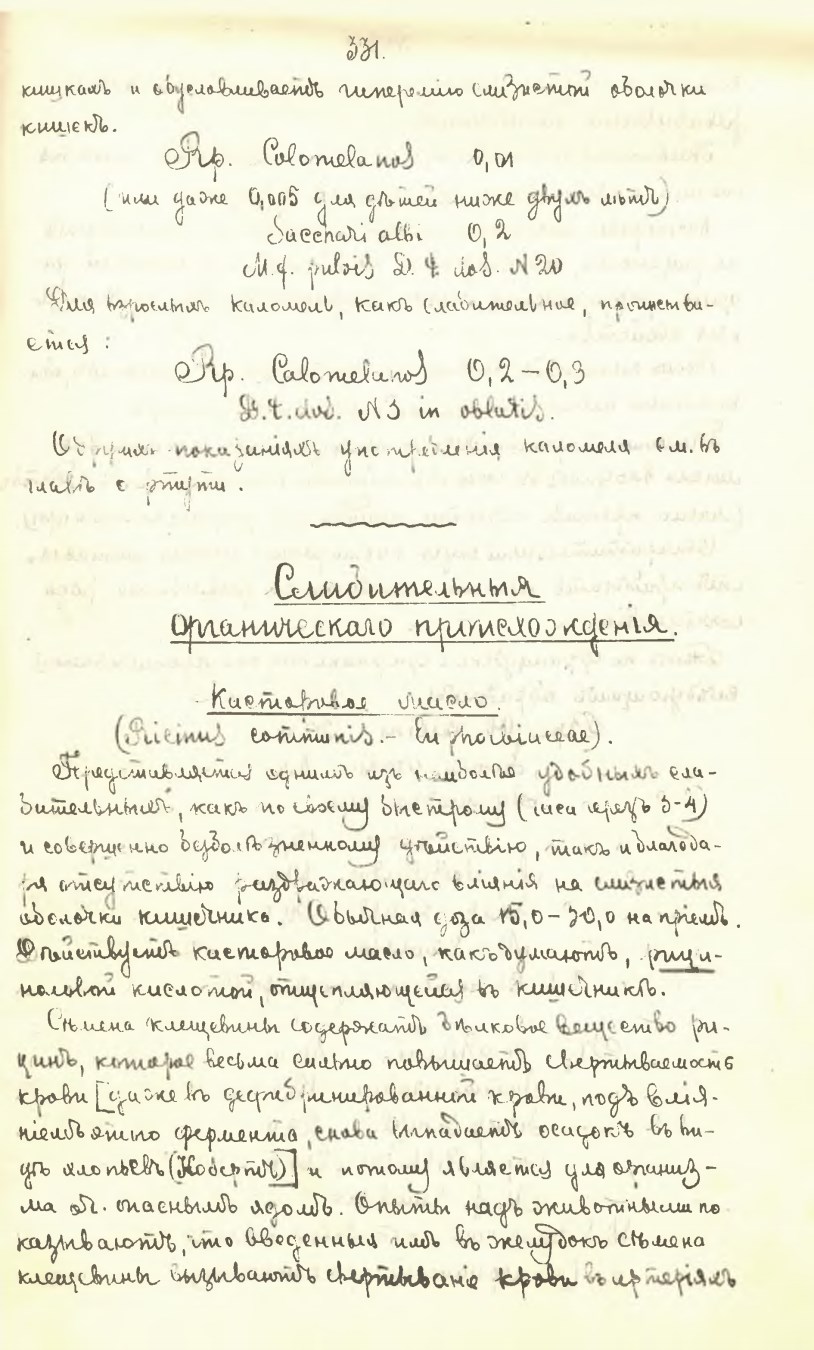 331.
кишкахъ и обусловливаетъ гиперемію слизистой оболочки
кишекъ.
Rp. Calomelanos 0,01
(или даже 0,005 для дѣтей ниже двухъ лѣтъ)
Sacchari albi 0,2
M. f. pulvis D. t. dos. N 20
Для взрослыхъ каломель, какъ слабительное, прописыва-
ется:
Rp. Calomelanos 0,2 – 0,3
D. t. dos. N 3 in oblatis.
О другихъ показаніяхъ употребленія каломеля см. въ
главѣ о ртути.
Слабительныя
органическаго происхожденія.
Касторовое масло.
(Ricinus communis. – Euphorbiaceae).
Представляется однимъ изъ наиболѣе удобныхъ сла-
бительныхъ, какъ по своему быстрому (часа черезъ 3-4)
и совершенно безболѣзненному дѣйствію, такъ и благода-
ря отсутствію раздражающаго вліянія на слизистыя
оболочки кишечника. Обычная доза 15,0 – 30,0 на пріемъ.
Дѣйствуетъ касторовое масло, какъ думаютъ, рици-
ноловой кислотой, отщепляющейся въ кишечникѣ.
Сѣмена клещевины содержатъ бѣлковое вещество ри-
цинъ, которое весьма сильно повышаетъ свертываемость
крови [даже въ дефибринированной крови, подъ влія-
ніемъ этого фермента, снова выпадаетъ осадокъ въ ви-
дѣ хлопьевъ (Кобертъ)] и потому является для организ-
ма оч. опаснымъ ядомъ. Опыты надъ животными по
казываютъ, что введенныя имъ въ желудокъ сѣмена
клещевины вызываютъ свертываніе крови въ артеріяхъ